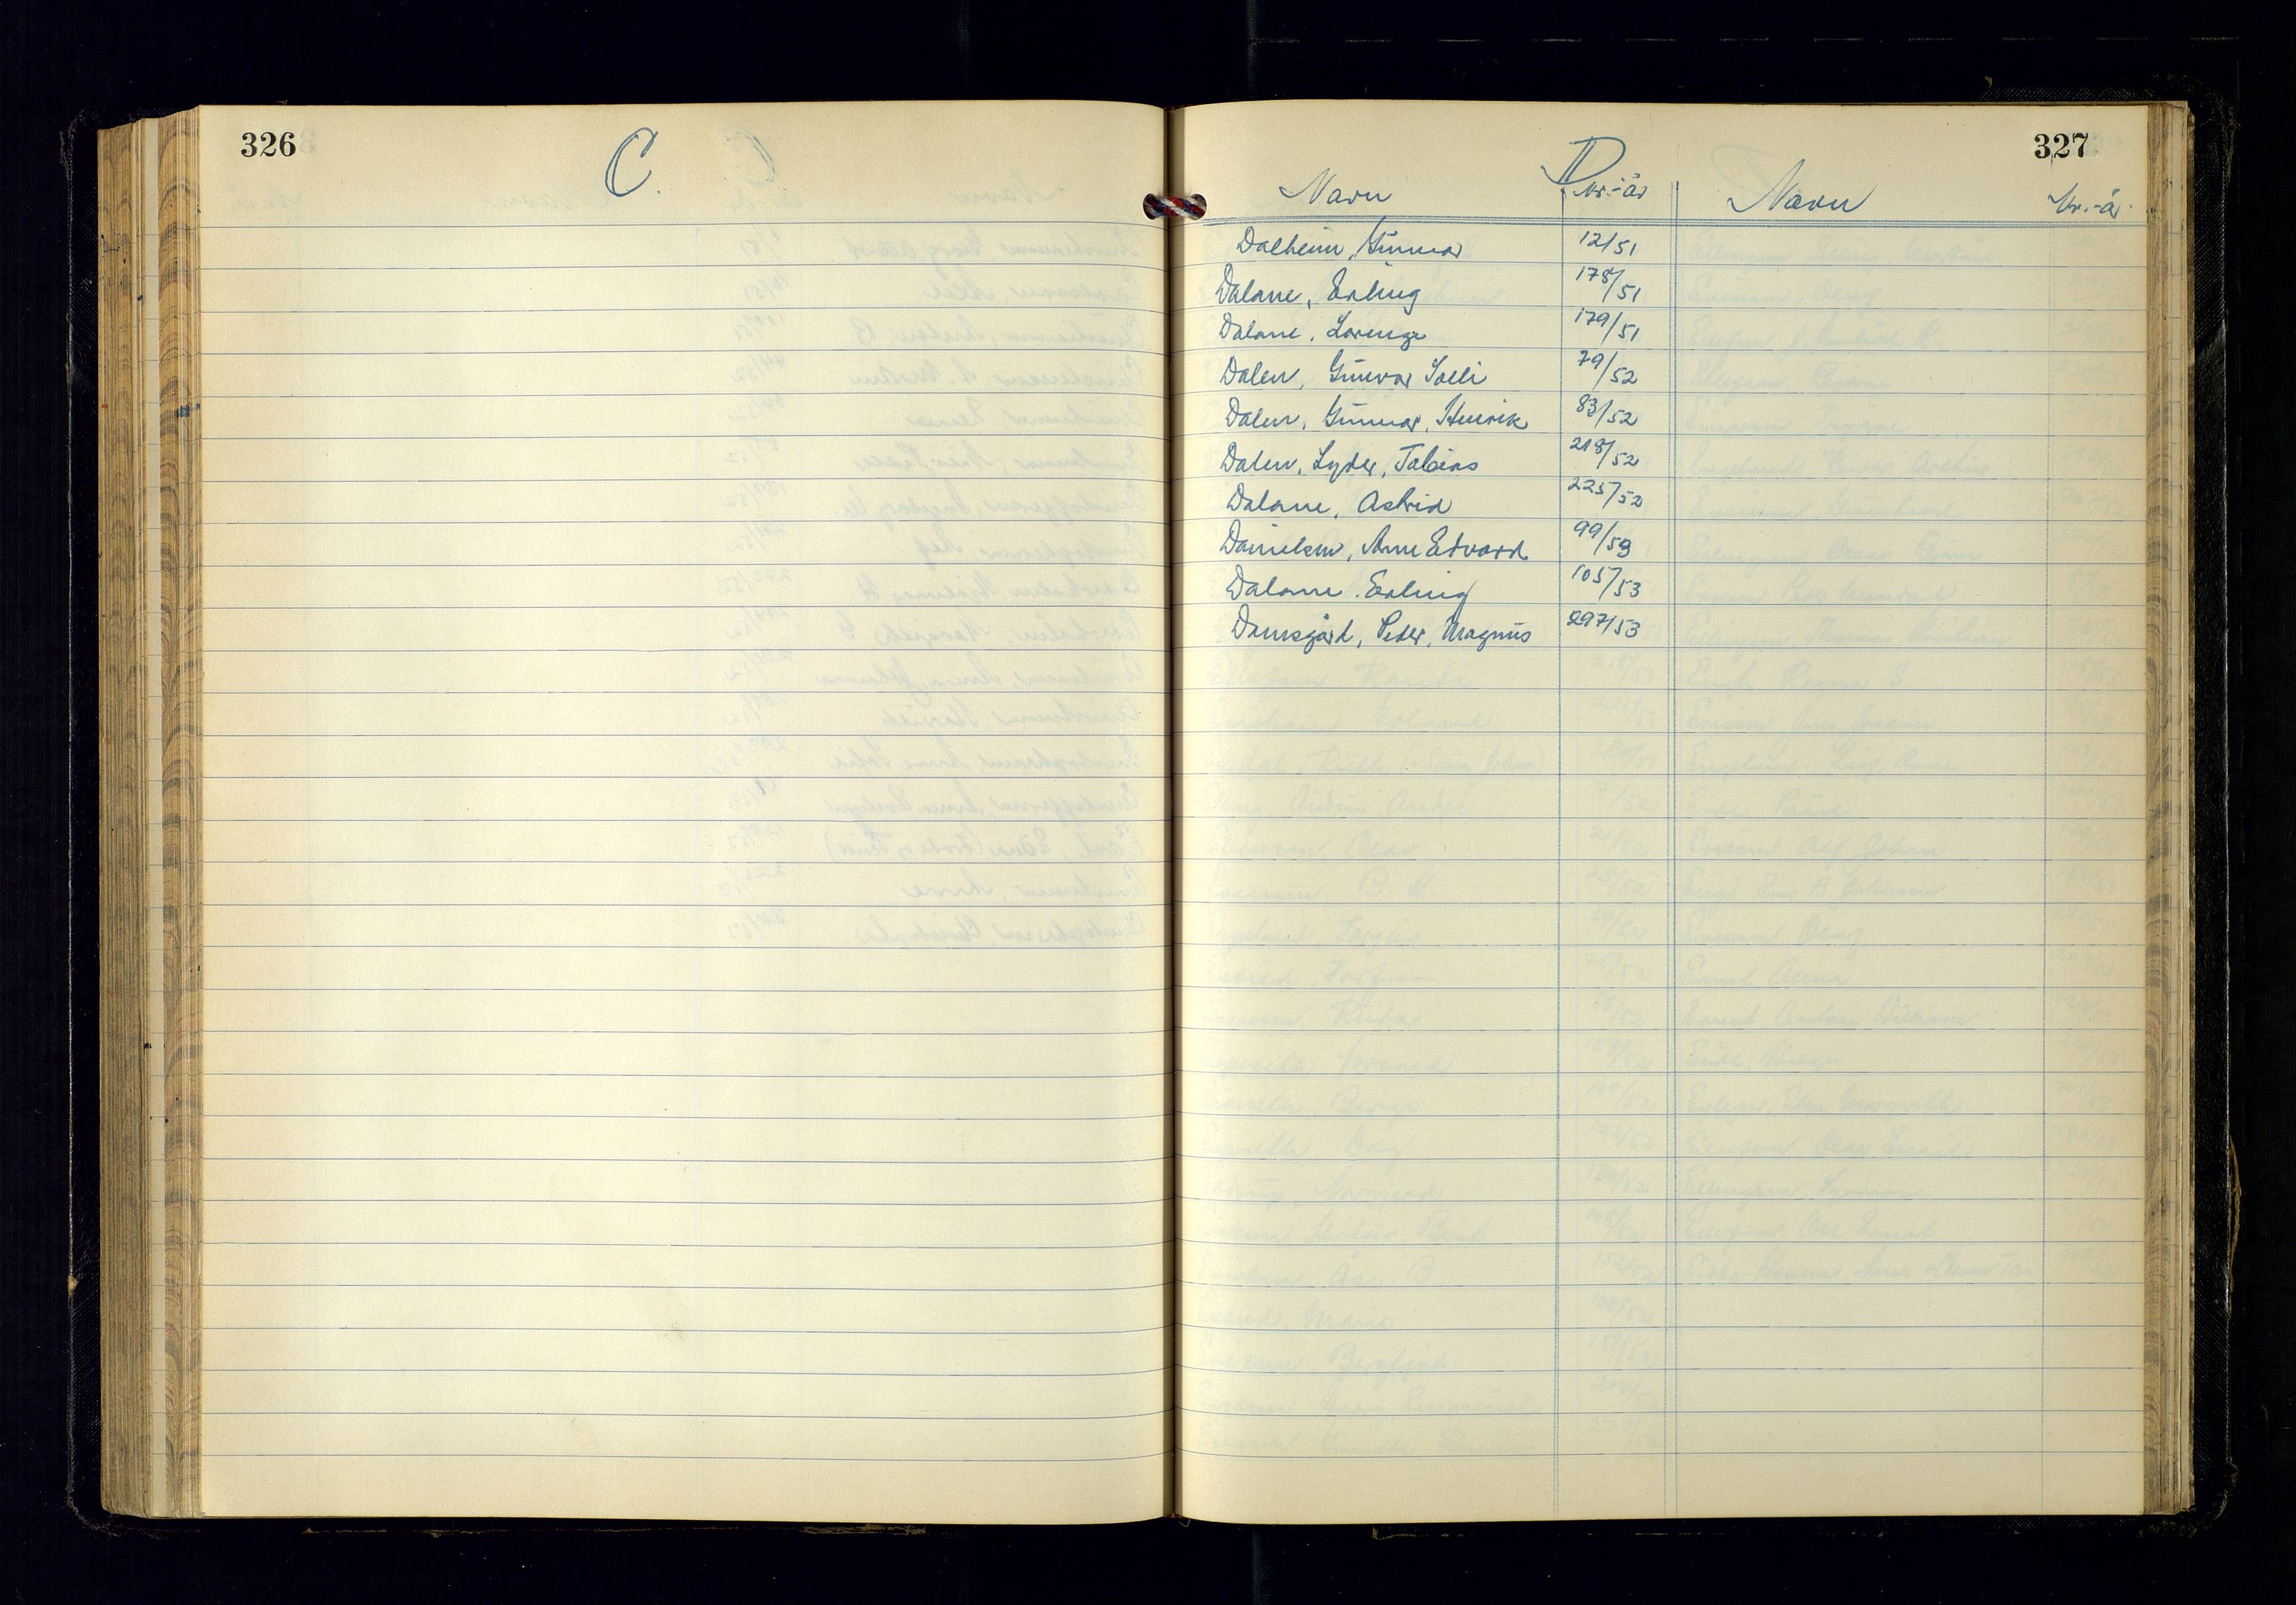 326
C.
327
D
Navn Nr.-år Navn Nr.-år
Dalheim, Gunnar 12/51
Dalane, Erling 178/51
Dalane, Lorenze 179/51
Dalen, Gunvor Solli 79/52
Dalen, Gunnar, Henrik 83/52
Dalen, Lyder, Tobias 218/52
Dalane, Astrid 225/52
Danielsen, Arne Edvard 99/53
Dalane. Erling 105/53
Damsgård, Peder, Magnus 297/53